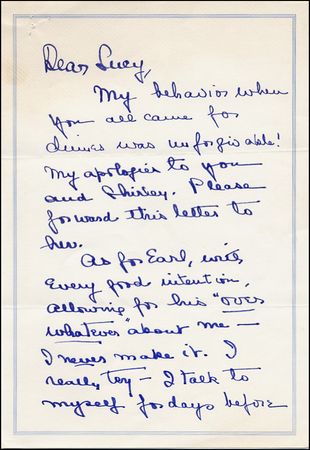 Dear Lucy,
My behavior when
you all came for
dinner was unforgivable!
My apologies to you
and Shirley. Please
forward this letter to
her.
As for Earl, with
every good intention,
allowing for his "over
whatever" about me —
I never make it. I
really try — I talk to
myself for days before